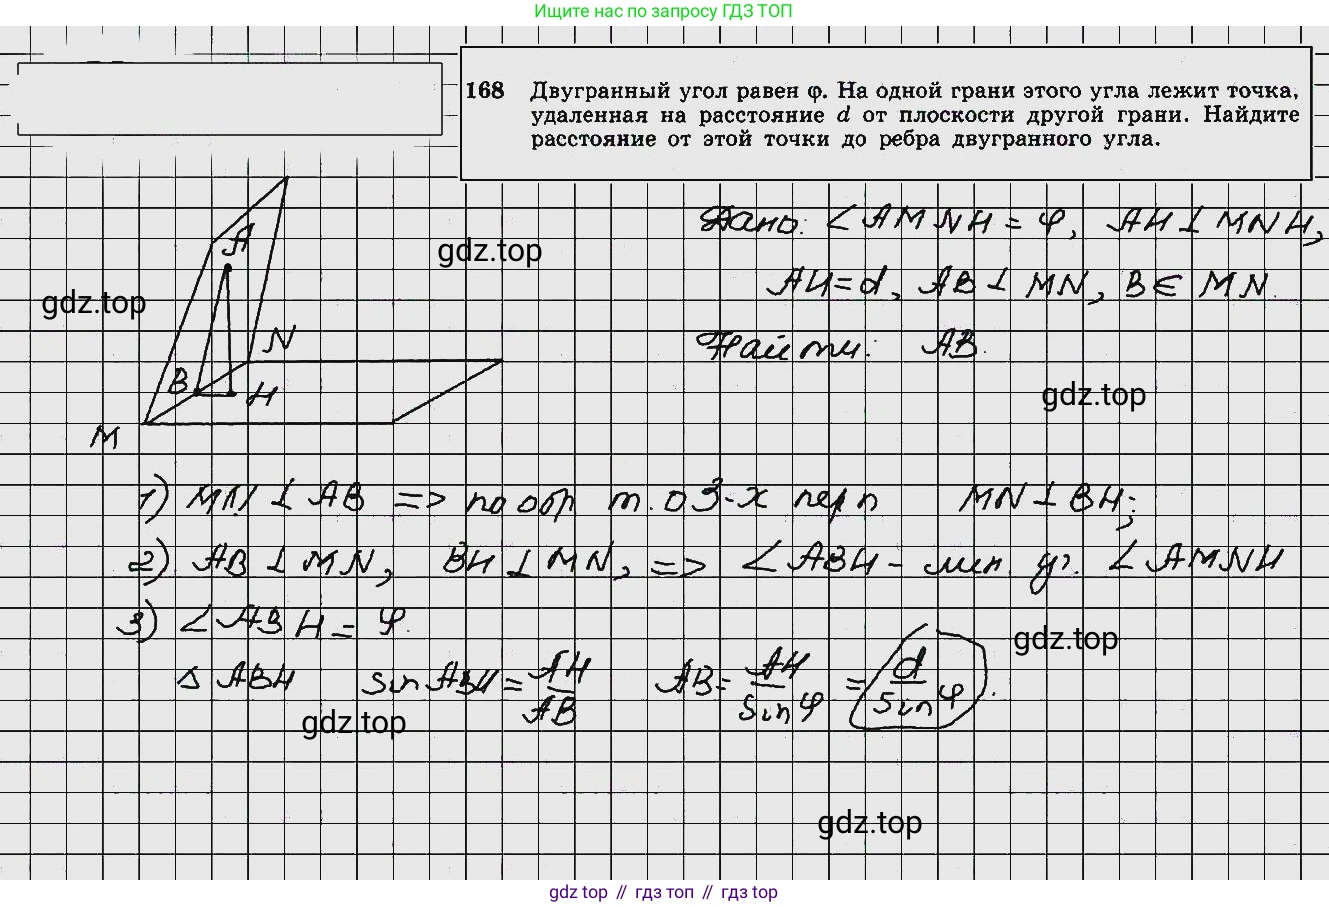 Ищите нас по запросу ГДЗ ТОП
168 Двугранный угол равен φ. На одной грани этого угла лежит точка,
удаленная на расстояние d от плоскости другой грани. Найдите
расстояние от этой точки до ребра двугранного угла.
Дано: ∠AMNH = φ, AH ⊥ MNH,
AH = d, AB ⊥ MN, B ∈ MN.
Найти: AB.
gdz.top
gdz.top
gdz.top
A
N
B
H
M
1) MN ⊥ AB => по обр т. о 3-х перп MN ⊥ BH;
2) AB ⊥ MN, BH ⊥ MN, => ∠ABH - лин. уг. ∠AMNH
3) ∠ABH = φ.
gdz.top
△ ABH sin ABH = AH/AB AB = AH/sin φ = d/sin φ.
gdz.top
gdz.top
gdz top // гдз топ // gdz top